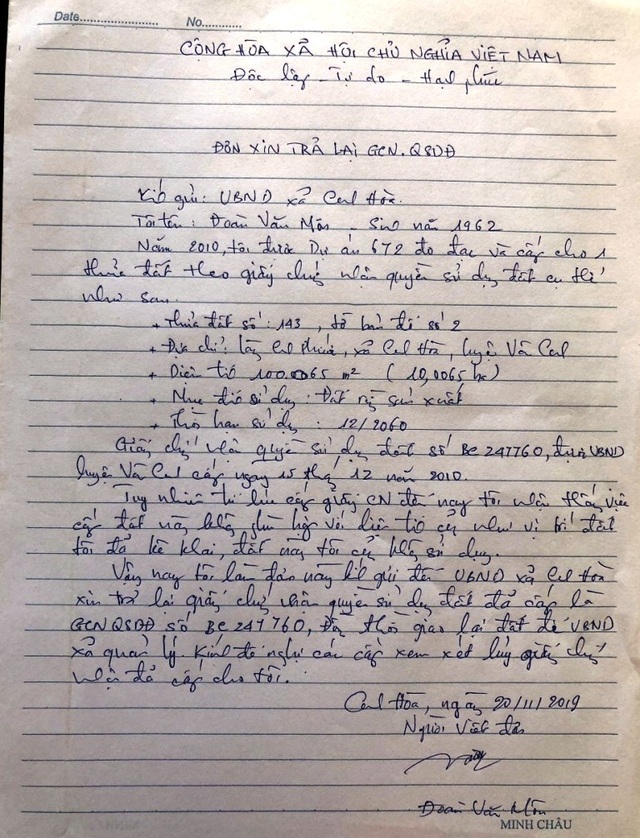 Date........................ No............
CỘNG HÒA XÃ HỘI CHỦ NGHĨA VIỆT NAM
Độc lập - Tự do - Hạnh phúc
ĐƠN XIN TRẢ LẠI GCN.QSDĐ
Kính gửi: UBND xã Canh Hòa.
Tôi tên: Đoàn Văn Môn - Sinh năm 1962
Năm 2010, tôi được Dự án 672 đo đạc và cấp cho 1
thửa đất theo giấy chứng nhận quyền sử dụng đất cụ thể
như sau.
+ Thửa đất số: 143, tờ bản đồ số 2
+ Địa chỉ: làng Canh Phước, xã Canh Hòa, huyện Vân Canh
+ Diện tích 100.0065 m² (10,0065 ha)
+ Mục đích sử dụng: Đất rừng sản xuất
+ Thời hạn sử dụng: 12/2060
Giấy chứng nhận quyền sử dụng đất số BC 247760, được UBND
huyện Vân Canh cấp, ngày 15 tháng 12 năm 2010.
Tuy nhiên từ lúc cấp giấy CN đến nay tôi nhận thấy việc
cấp đất này không phù hợp với diện tích cũng như vị trí đất
tôi đã kê khai, đất này tôi cũng không sử dụng.
Vậy nay tôi làm đơn này kính gửi đến UBND xã Canh Hòa
xin trả lại giấy chứng nhận quyền sử dụng đất đã cấp là
GCNQSDĐ số BC 247760, Đồng thời giao lại đất để UBND
xã quản lý. Kính đề nghị các cấp xem xét hủy giấy chứng
nhận đã cấp cho tôi.
Canh Hòa, ngày 20/11/2019
Người viết đơn
Đoàn Văn Môn
MINH CHÂU